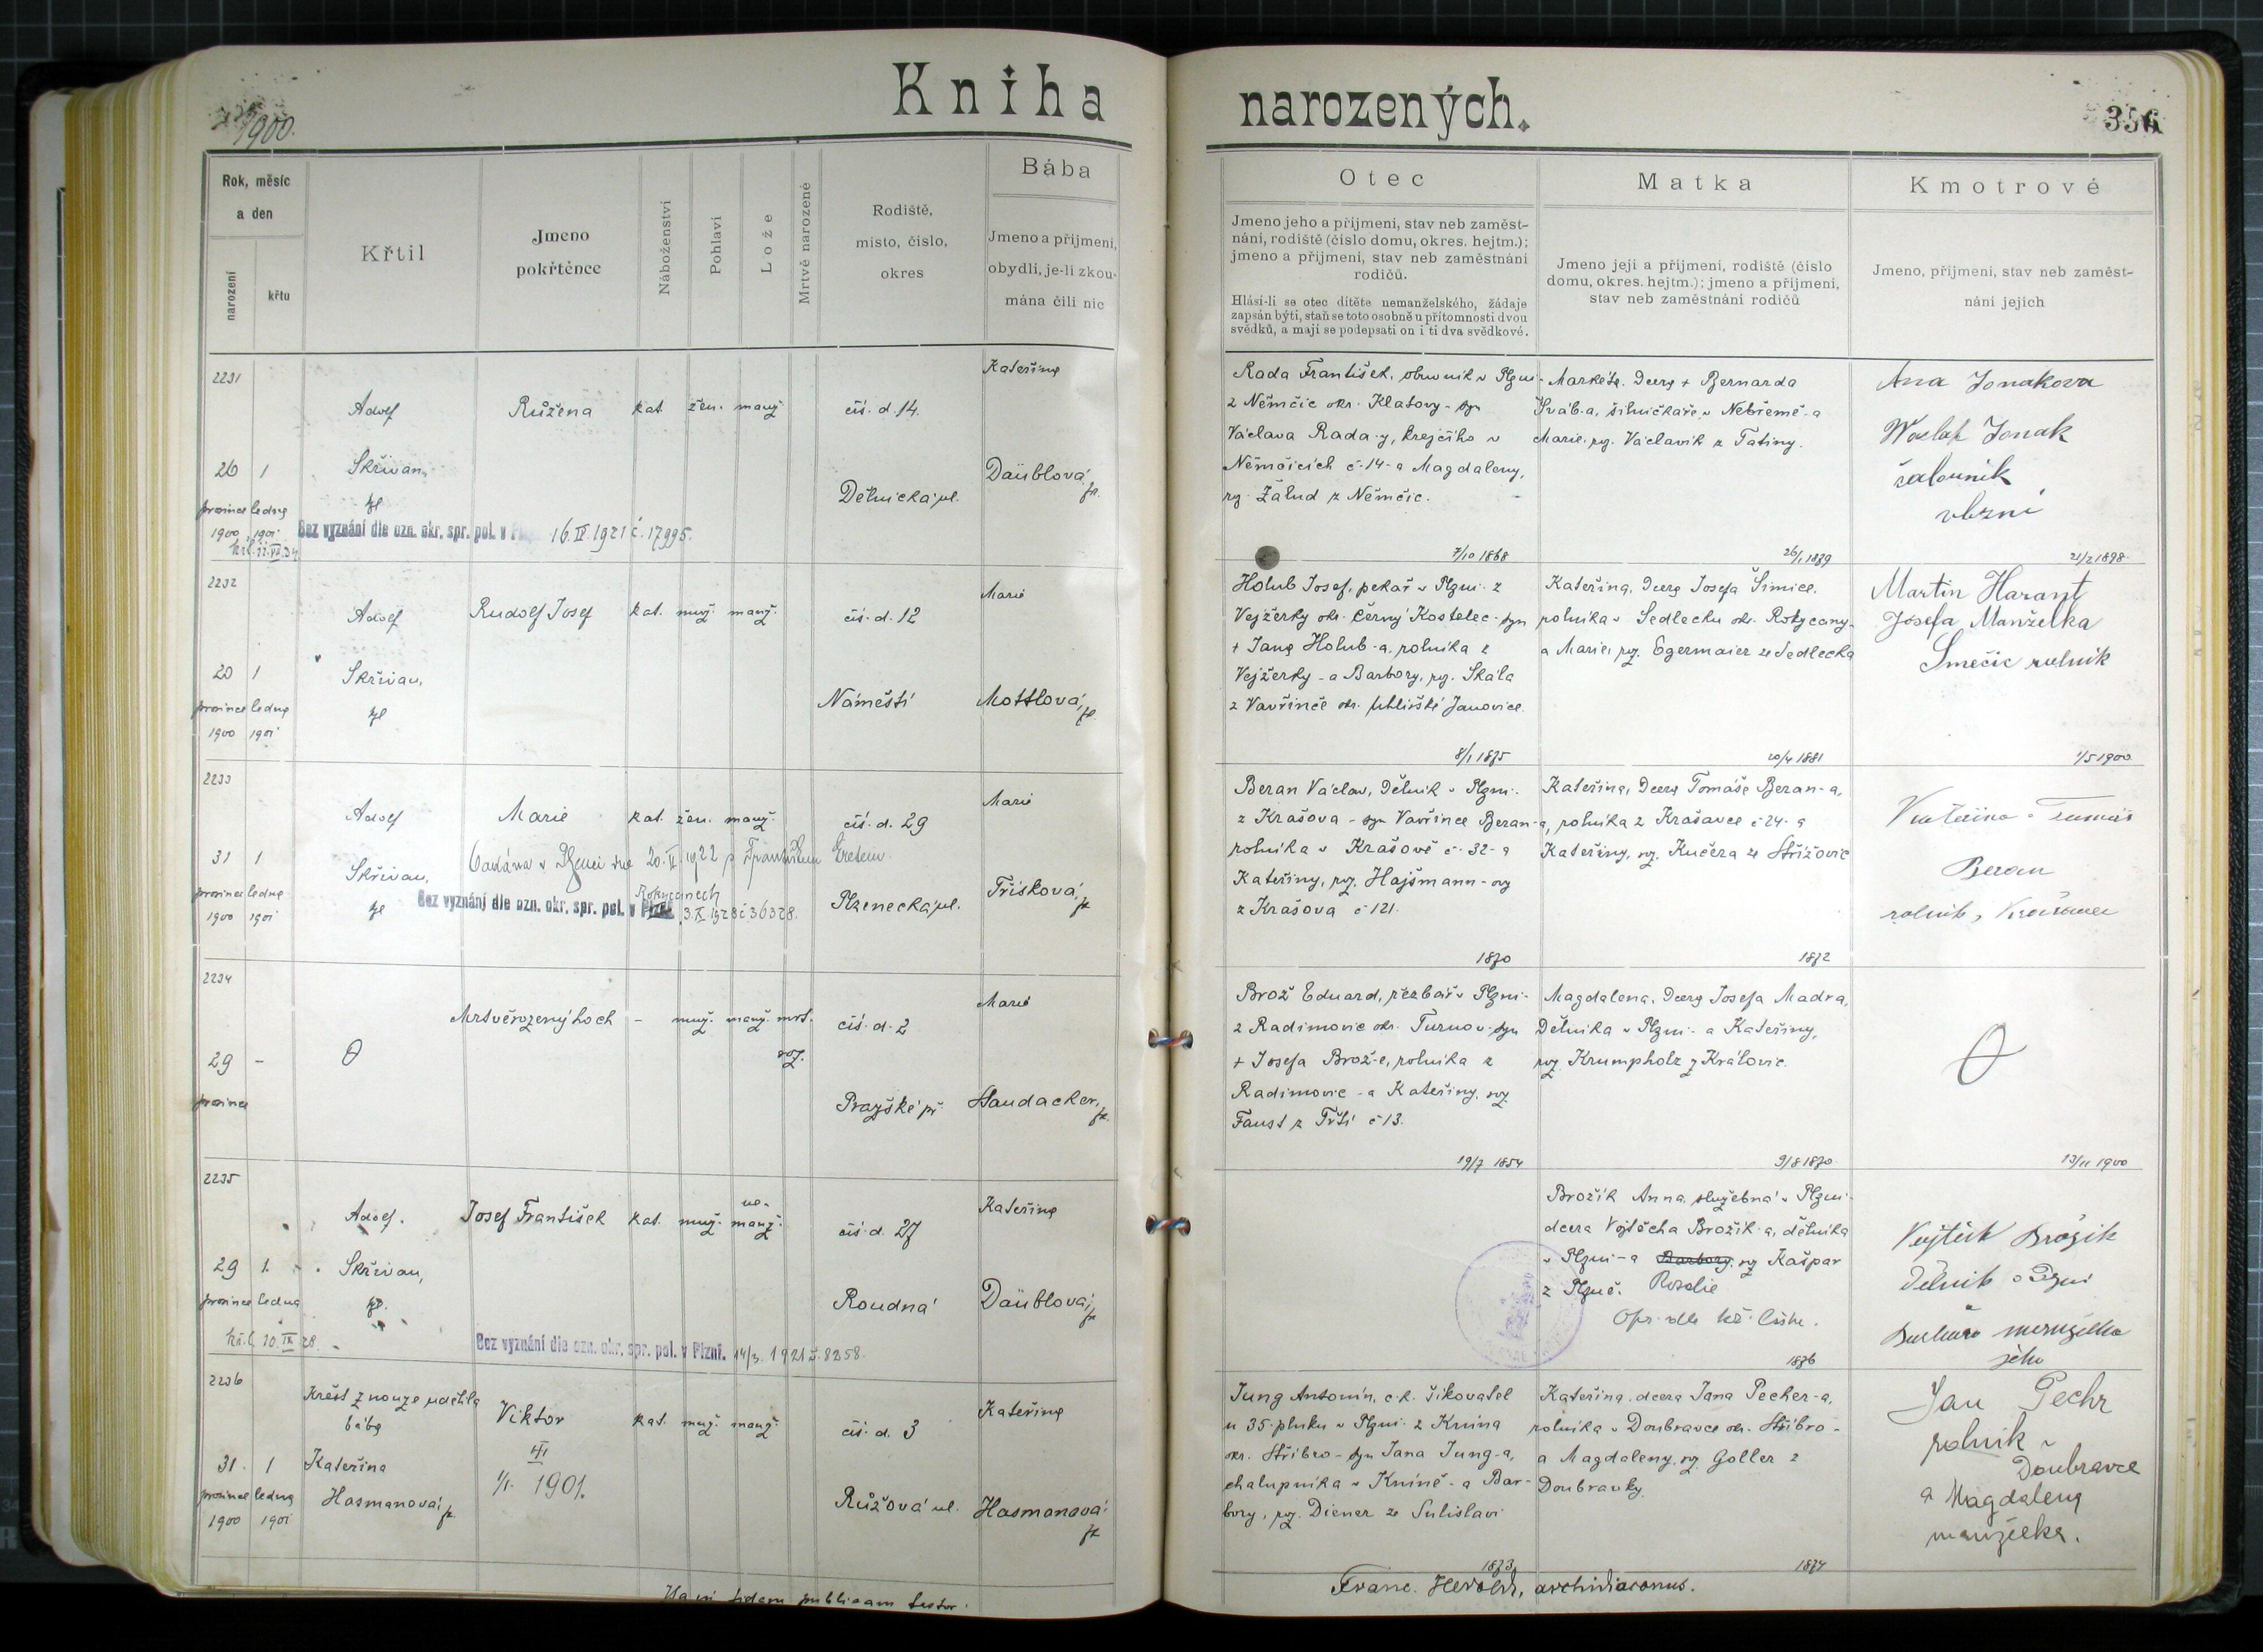 Kniha narozených.
1900.
356
Rok, měsíc
a den
narození
křtu
Křtil
Jmeno
pokřtěnce
Náboženství
Pohlaví
Lože
Mrtvě narozené
Rodiště,
místo, číslo,
okres
Bába
Jmeno a příjmení,
obydlí, je-li zkou-
mána čili nic
Otec
Jmeno jeho a příjmení, stav neb zaměst-
nání, rodiště (číslo domu, okres. hejtm.);
jmeno a příjmení, stav neb zaměstnání
rodičů.
Hlásí-li se otec dítěte nemanželského, žádaje
zapsán býti, staň se toto osobně u přítomnosti dvou
svědků, a mají se podepsati on i ti dva svědkové.
Matka
Jmeno její a příjmení, rodiště (číslo
domu, okres. hejtm.); jmeno a příjmení,
stav neb zaměstnání rodičů
Kmotrové
Jmeno, příjmení, stav neb zaměst-
nání jejich
2231
26 1
prosince ledna
1900 1901
Adolf
Skřivan,
Růžena
kat. žen. manž.
čís. d. 14.
Dělnická ul.
Kateřina
Daüblová,
Bez vyznání dle ozn. okr. spr. pol. v 16. IV. 1921 č. 17995.
Rada František, obuvník v Plzni-
z Němčic okr. Klatovy - syn
Václava Rada-y, krejčího v
Němčicích č. 14 - a Magdaleny,
roz. Žálud z Němčic.
7/10 1868
Markéta, dcera + Bernarda
Šváb-a, silničkáře v Nebřemě - a
Marie, roz. Václavík z Tatiny.
26/1 1879
Ana Jonakova
Waclaf Jonak
čalouník
vlzni
21/2 1898
2232
20 1
prosince ledna
1900 1901
Adolf
Skřivan,
Rudolf Josef
kat. muž. manž.
čís. d. 12
Náměstí
Marie
Mottlová,
Holub Josef, pekař v Plzni - z
Vejžerky okr. Černý Kostelec - syn
+ Jana Holub-a, rolníka z
Vejžerky - a Barbory, roz. Skála
z Vavřinče okr. Uhlířské Janovice.
8/1 1875
Kateřina, dcera Josefa Šimice,
rolníka v Sedlecku okr. Rokycany -
a Marie, roz. Egermaier ze Sedlecka
20/4 1881
Martin Harant
Josefa Manželka
Smečic rolník
1/5 1900
2233
31 1
prosince ledna
1900 1901
Adolf
Skřivan,
Marie
kat. žen. manž.
čís. d. 29
Plzenecká ul.
Marie
Tříšková,
Oddána v Plzni dne 20. V. 1922 s Františkem
Rokycanech
Bez vyznání dle ozn. okr. spr. pol. v Plzni 3. X. 1928 č 36328.
Beran Václav, dělník v Plzni -
z Krašova - syn Vavřince Beran-a,
rolníka v Krašově č. 32 - a
Kateřiny, roz. Hajšmann-ov
z Krašova č 121.
1870
Kateřina, dcera Tomáše Beran-a,
rolníka z Krašovce č 24 - a
Kateřiny, roz. Kučera ze Střížovic
1872
Beran
2234
29 -
prosince
Mrtvěrozený hoch
- muž. manž. mrt.
roz.
čís. d. 2
Pražské př.
Marie
Haudacker,
Brož Eduard, řezbář v Plzni -
z Radimovic okr. Turnov - syn
+ Josefa Brož-e, rolníka z
Radimovic - a Kateřiny, roz.
Faust z Trští č 13.
19/7 1854
Magdalena, dcera Josefa Madra,
dělníka v Plzni - a Kateřiny,
roz. Krumpholz z Královic.
9/8 1870
13/11 1900
2235
29 1.
prosince ledna
Adolf.
Skřivan,
Josef František
kat. muž. ne-
manž.
čís. d. 27
Roudná
Kateřina
Daüblová,
Bez vyznání dle ozn. okr. spr. pol. v Plzni. 14/3. 1921 č. 8258.
Brožík Anna, služebná v Plzni -
dcera Vojtěcha Brožík-a, dělníka
v Plzni - a Barbory, roz. Kašpar
z Plzně. Rosalie
1876
Vojtěch Brožík
dělník v Plzni
Barbora manželka
jeho
2236
31. 1
prosince ledna
1900 1901
Křest z nouze udělila
bába
Kateřina
Hasmanová,
Viktor
1/1. 1901.
kat. muž. manž.
čís. d. 3
Růžová ul.
Kateřina
Hasmanová,
Jung Antonín, c. k. šikovatel
u 35. pluku v Plzni - z Knína
okr. Stříbro - syn Jana Jung-a,
chalupníka v Kníně - a Bar-
bory, roz. Diener ze Sulislavi
1873
Kateřina, dcera Jana Pecher-a,
rolníka v Doubravce okr. Stříbro -
a Magdaleny, roz. Goller z
Doubravky
1874
Jan Pechr
rolník v
Doubravce
a Magdalena
manželka.
fidem publicam testor.
Franc. Herold, archidiaconus.